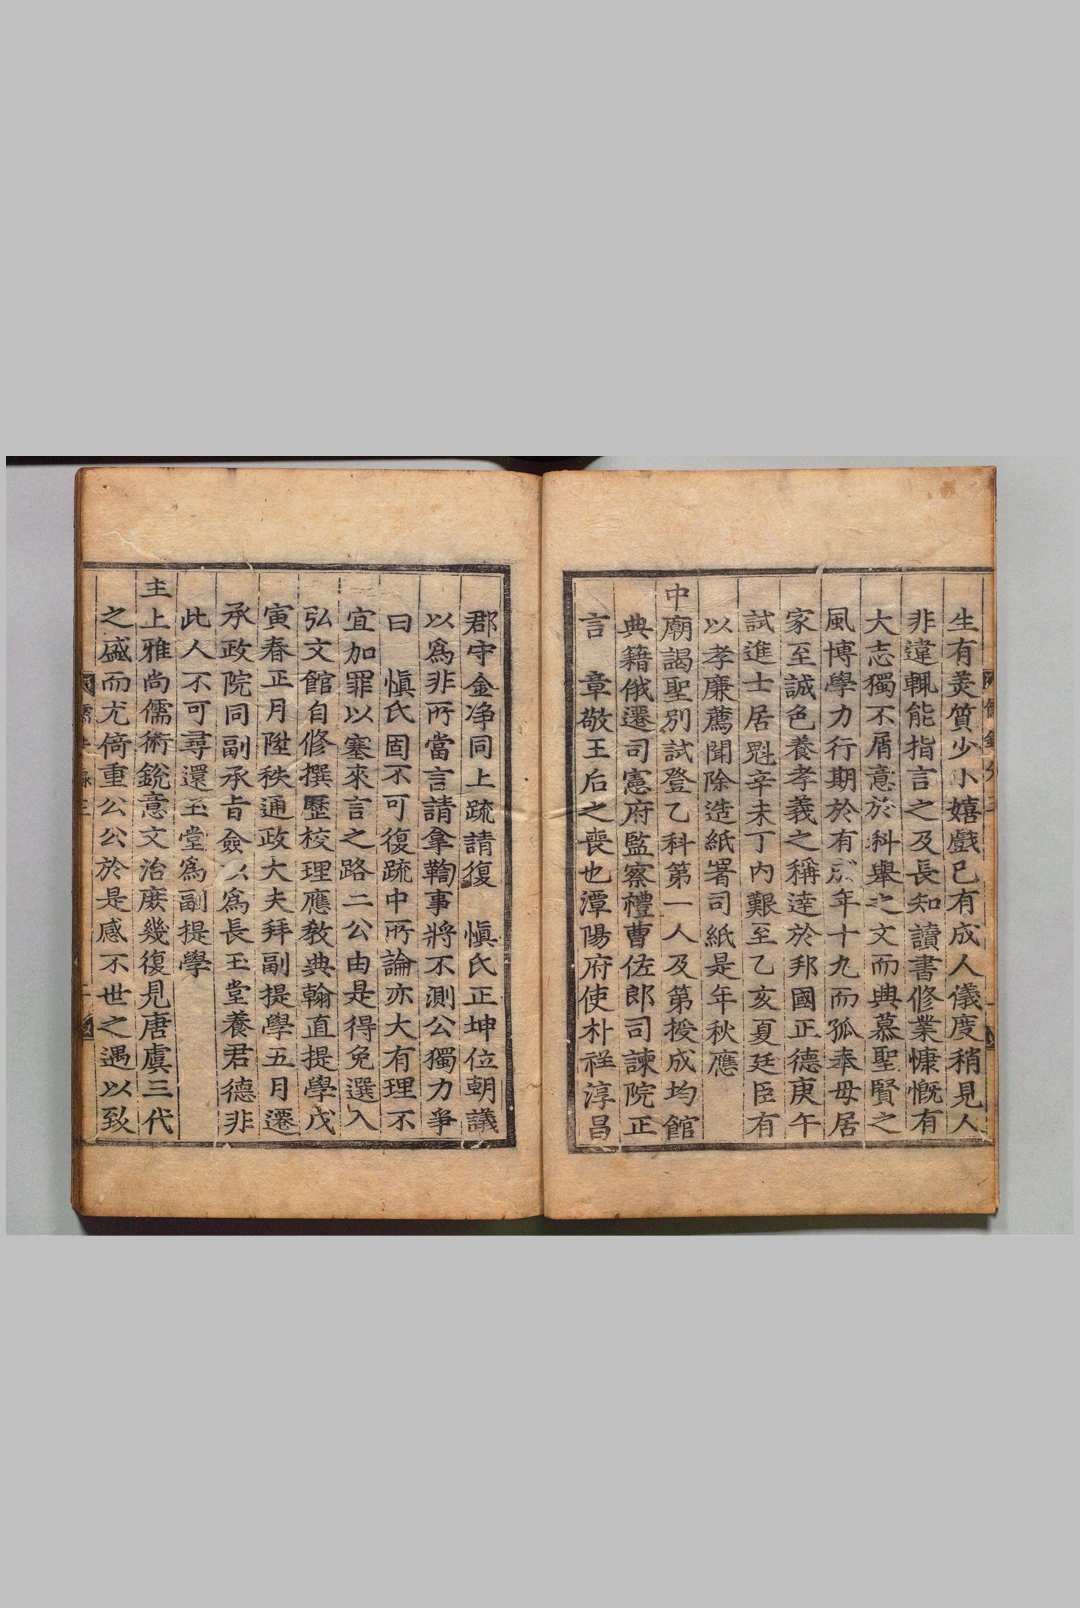 生有美質少小嬉戲已有成人儀度稍見人
非違輒能指言之及長知讀書修業慷慨有
大志獨不屑意於科擧之文而典慕聖賢之
風博學力行期於有年十九而孤奉母居
家至誠色養孝義之稱達於邦國正德庚午
試進士居魁辛未丁內艱至乙亥夏廷臣有
以孝廉薦聞除造紙署司紙是年秋應
中廟謁聖別試登乙科第一人及第授成均館
典籍俄遷司憲府監察禮曹佐郎司諫院正
言 章敬王后之喪也潭陽府使朴祥淳昌
郡守金淨同上疏請復 愼氏正坤位朝議
以爲非所當言請拿鞫事將不測公獨力爭
曰 愼氏固不可復疏中所論亦大有理不
宜加罪以塞來言之路二公由是得免選入
弘文館自修撰歷校理應敎典翰直提學戊
寅春正月陞秩通政大夫拜副提學五月遷
承政院同副承旨僉以爲長玉堂養君德非
此人不可尋還玉堂爲副提學
主上雅尙儒術銳意文治庶幾復見唐虞三代
之盛而尤倚重公公於是感不世之遇以致